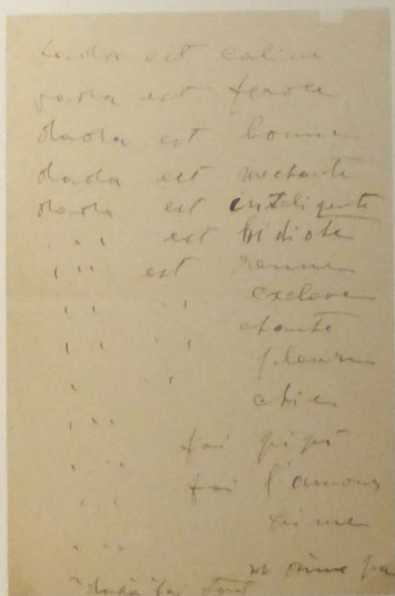 dada est caline
dada est feroce
dada est bonne
dada est mechante
dada est inteligente
" " est hidiote
" " est renne
" " " exclave
" " " chante
" " " pleure
" " " chie
" " fai pipi
" " fai l'amour
" " rime
" " ne rime pa
dada fai tout